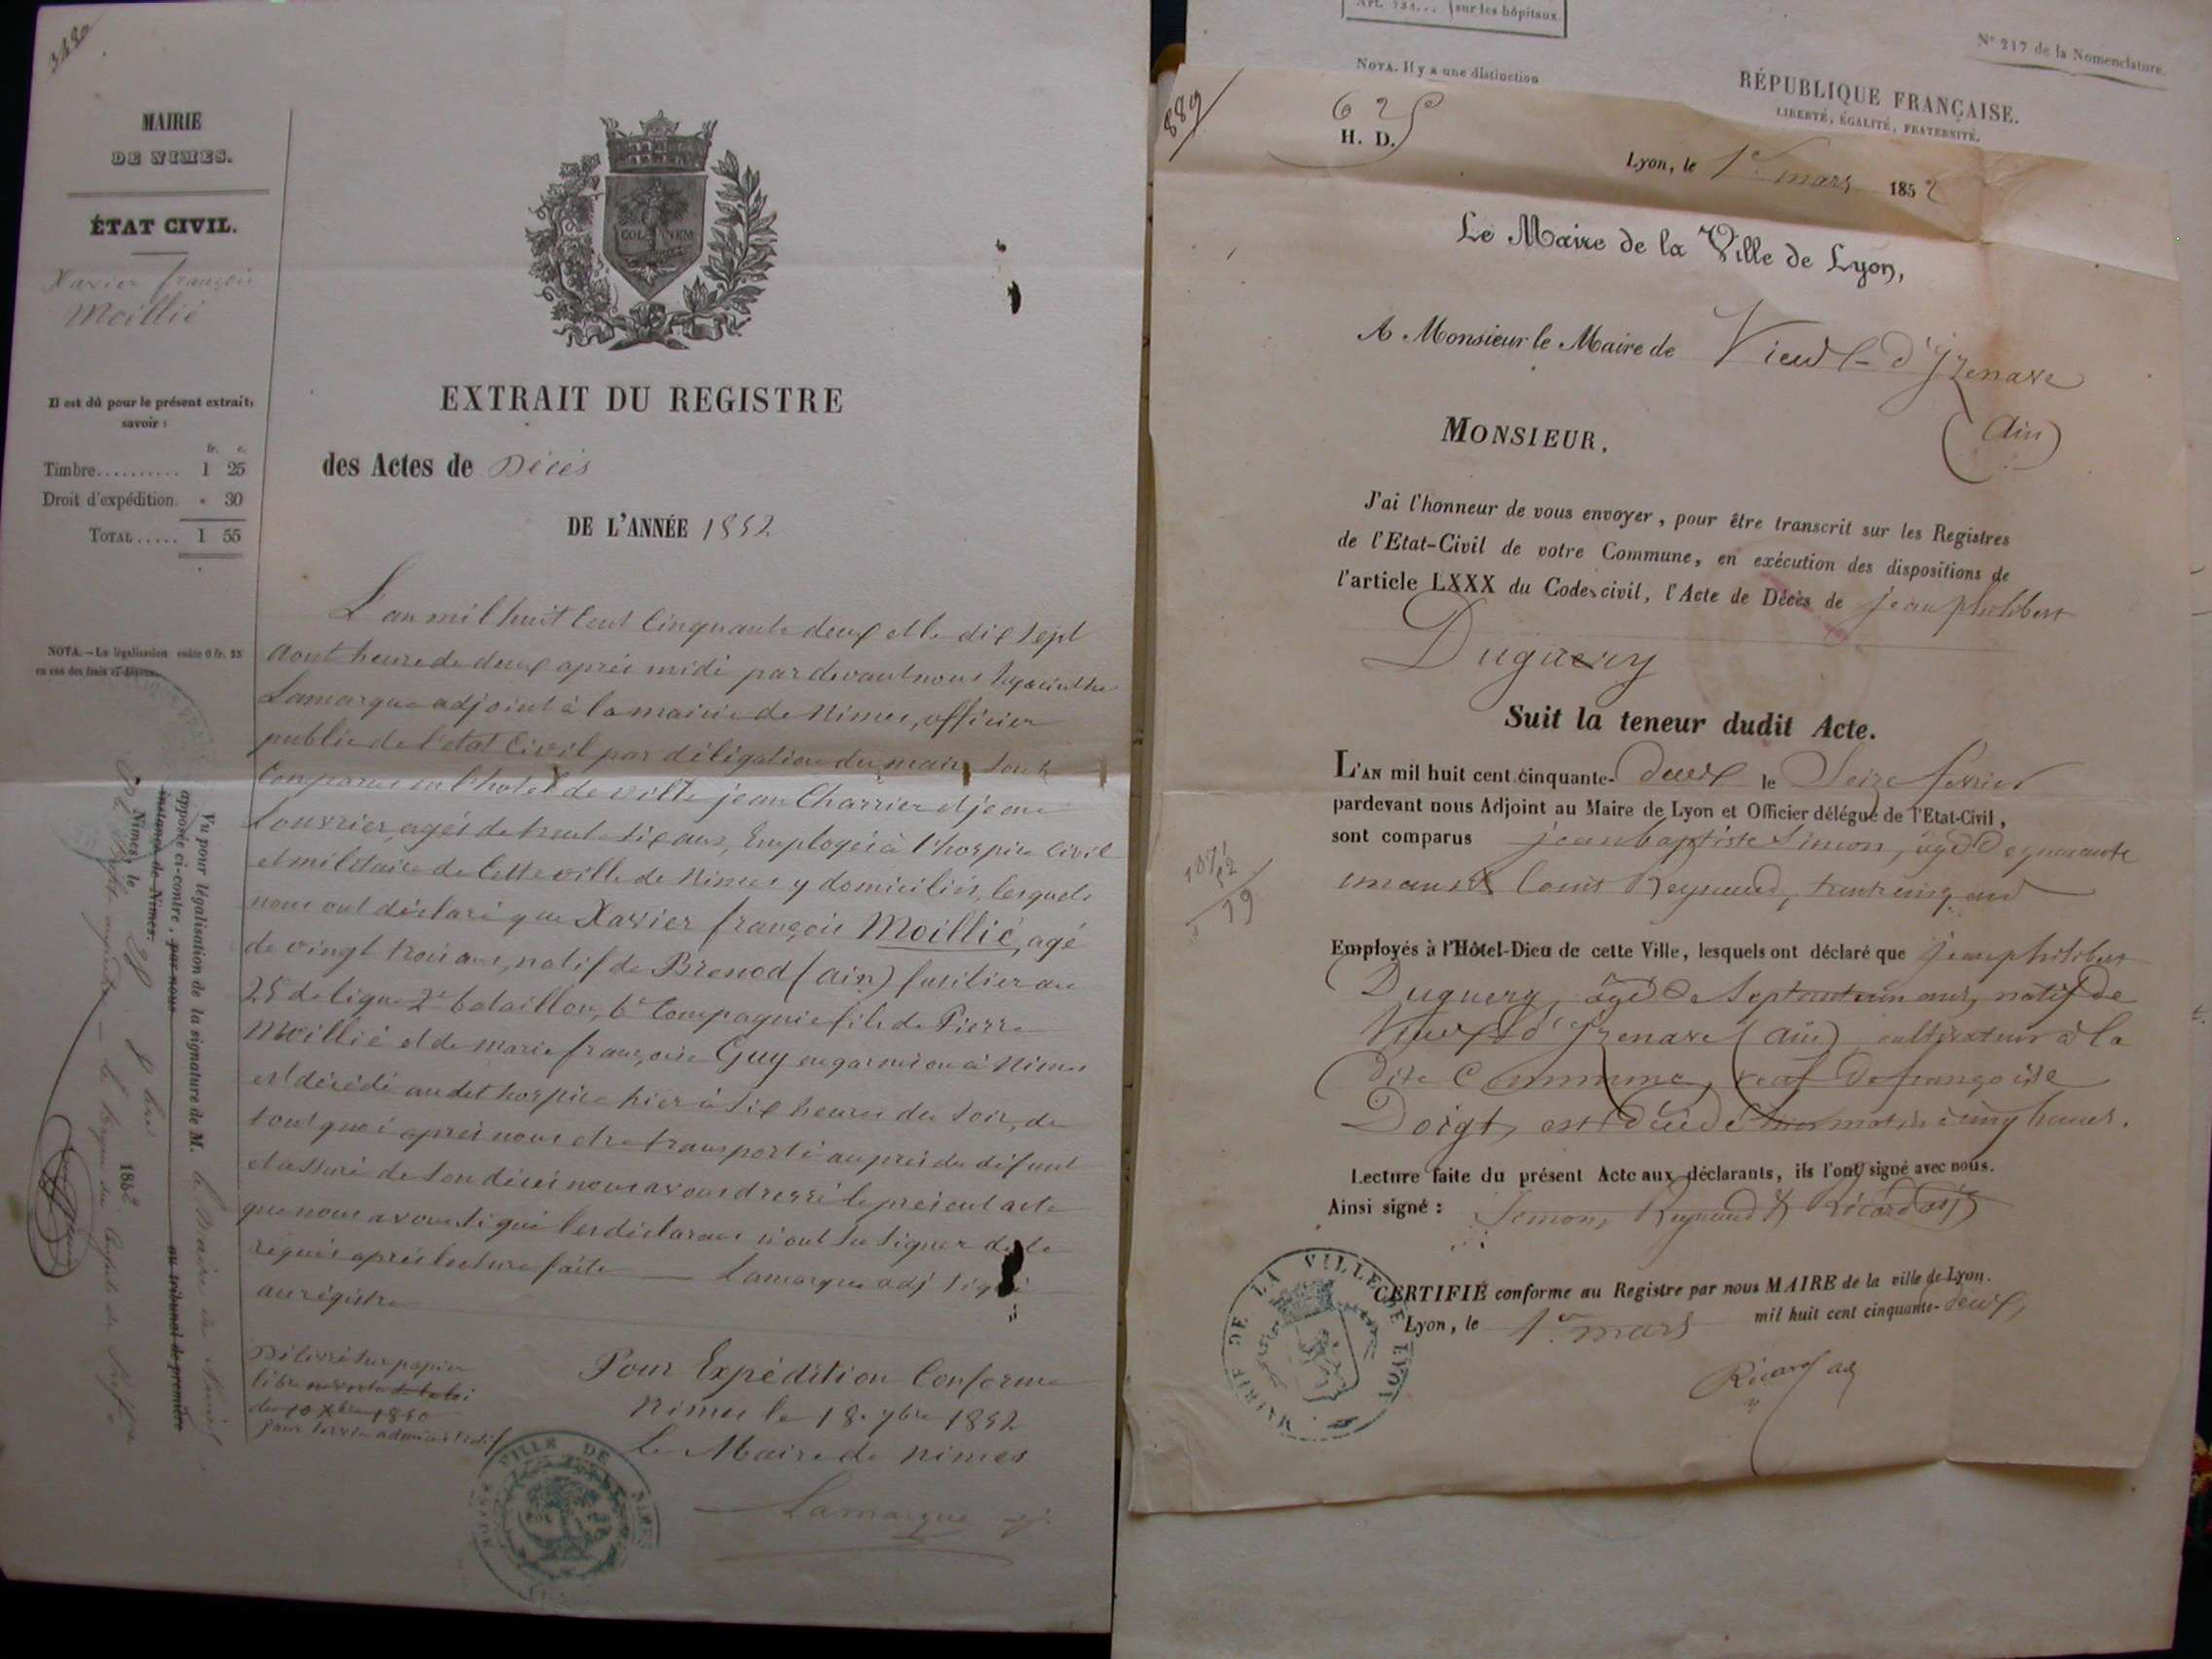 3480
MAIRIE
DE NIMES.
ÉTAT CIVIL.
Xavier françois
Moillié
Il est dû pour le présent extrait,
savoir :
fr. c.
Timbre.......... 1 25
Droit d'expédition. " 30
TOTAL..... 1 55
NOTA. — La légalisation coûte 0 fr. 25
en sus des frais ci-dessus.
COL NEM
EXTRAIT DU REGISTRE
des Actes de Décès
DE L'ANNÉE 1852
L'an mil huit Cent Cinquante deux et le dix sept
Aout heure de deux après midi par devant nous hyacinthe
Lamarque adjoint à la mairie de Nimes, officier
public de l'etat Civil par déligation du maire sont
Comparus en l'hotel de ville jean Charrier et jean
Louvrier, agés de trente six ans, Employés à l'hospice Civil
et militaire de Cette ville de Nimes y domiciliés, lesquels
nous ont déclaré que Xavier françois Moillié, agé
de vingt trois ans, natif de Brenod (ain) fusilier au
25e de ligne 2e bataillon, 6e Compagnie fils de Pierre
Moillié et de marie françoise Guy en garnison à Nimes
est décédé au dit hospice hier à six heures du soir, de
tout quoi après nous etre transporté auprès du défunt
et assuré de son décès nous avons dressé le présent acte
que nous avons signé les déclarans n'ont su signer de ce
requis après lecture faite — Lamarque adj signé
au régistre
Délivré sur papier
libre en vertu de la loi
du 10 Xbre 1850
pour service administratif
Pour Expédition Conforme
Nimes le 18. 7bre 1852
Le Maire de Nimes
Lamarque adj.
VILLE DE NIMES
Vu pour légalisation de la signature de M. le Maire de Nimes
apposée ci-contre, par nous au tribunal de première
instance de Nimes.
Nimes, le 28 8bre 1852.
N° 217 de la Nomenclature.
Art. 734... sur les hôpitaux.
NOTA. Il y a une distinction
RÉPUBLIQUE FRANÇAISE.
LIBERTÉ, ÉGALITÉ, FRATERNITÉ.
889
625
H. D.
Lyon, le 1er mars 1852
Le Maire de la Ville de Lyon,
A Monsieur le Maire de Vieux-d'Izenave
(Ain)
MONSIEUR,
J'ai l'honneur de vous envoyer, pour être transcrit sur les Registres
de l'Etat-Civil de votre Commune, en exécution des dispositions de
l'article LXXX du Code civil, l'Acte de Décès de jean philibert
Duguery
Suit la teneur dudit Acte.
L'AN mil huit cent cinquante-deux le Seize fevrier
pardevant nous Adjoint au Maire de Lyon et Officier délégué de l'Etat-Civil,
sont comparus jean baptiste Simon, âgé de quarante
un ans & Louis Reynaud, trente cinq ans
Employés à l'Hôtel-Dieu de cette Ville, lesquels ont déclaré que jean philibert
Duguery, âgé de Septante un ans, natif de
Vieux d'Izenave (Ain) cultivateur à la
dite Commune, veuf de françoise
Doigt, est décédé hier matin à cinq heures.
Lecture faite du présent Acte aux déclarants, ils l'ont signé avec nous.
Ainsi signé : Simon, Reynaud & Ricard adj
CERTIFIÉ conforme au Registre par nous MAIRE de la ville de Lyon.
Lyon, le 1er mars mil huit cent cinquante-deux,
Ricard adj
MAIRIE DE LA VILLE DE LYON